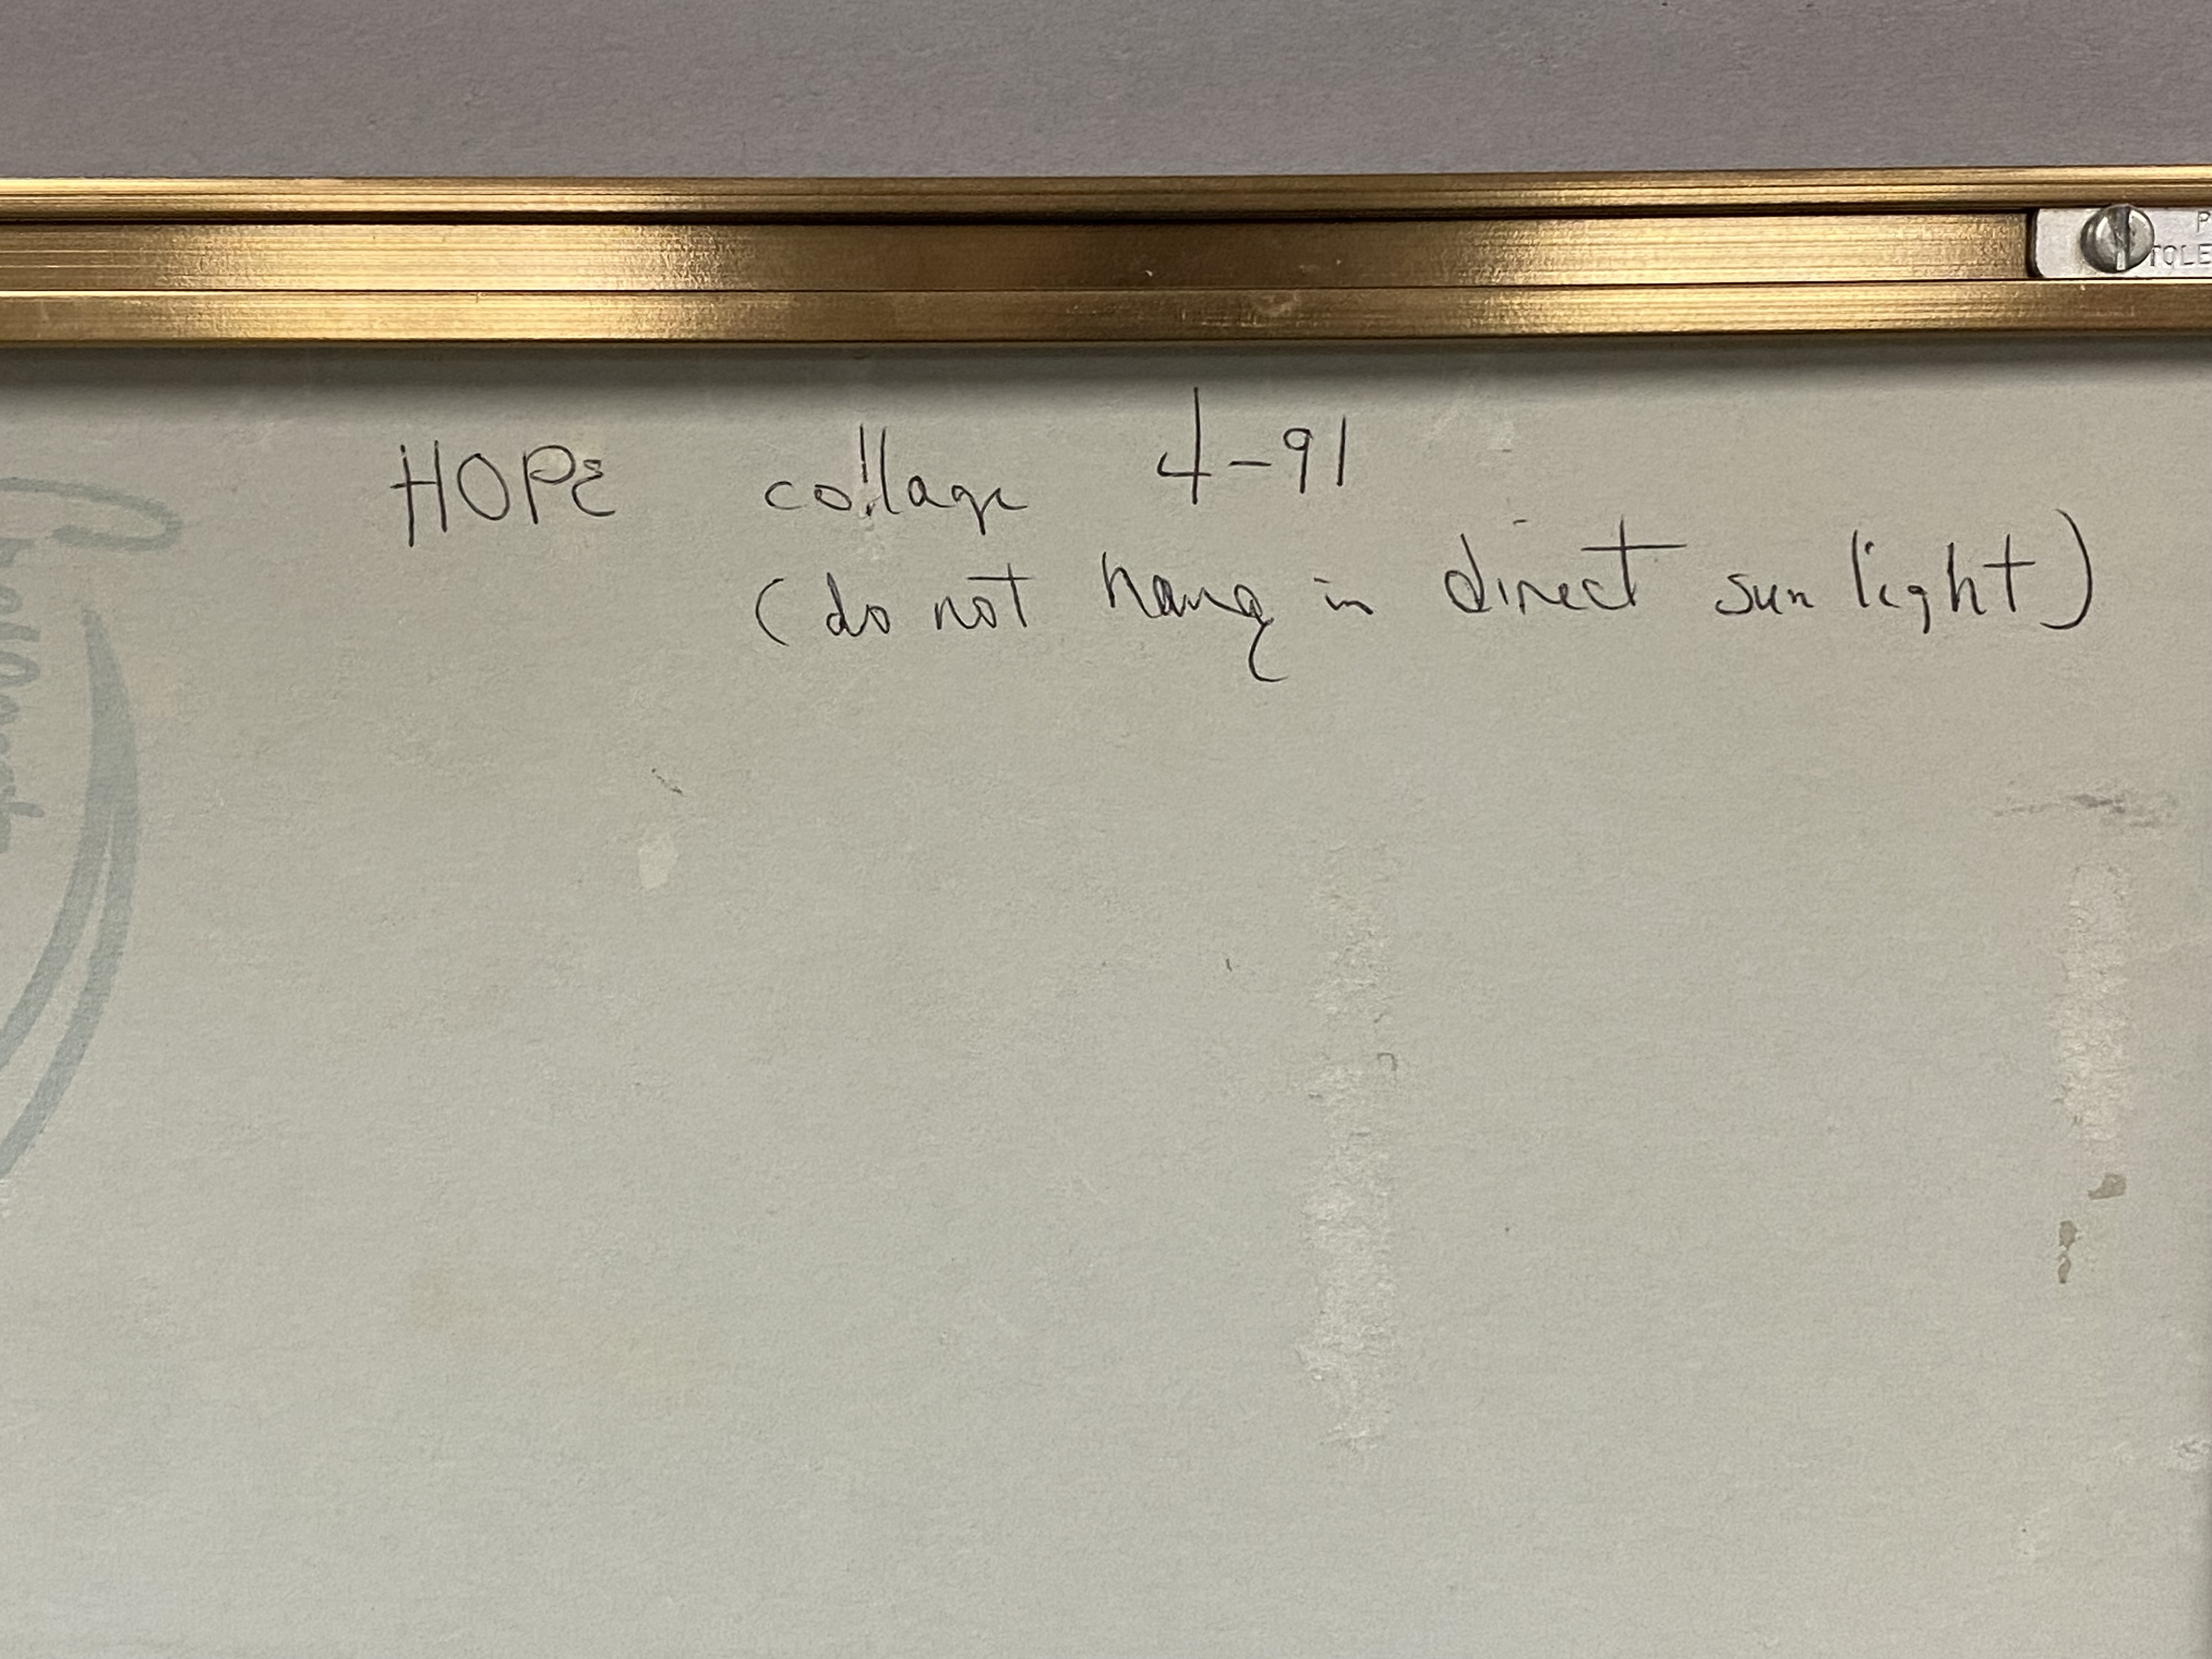 HOPE collage 4-91
(do not hang in direct sun light)
Crescent
TOLE